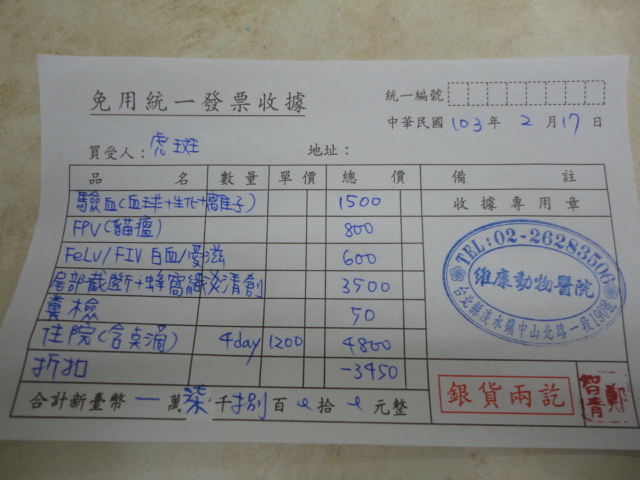 免用統一發票收據
統一編號
中華民國 103 年 2 月 17 日
買受人：虎斑 地址：
品名 數量 單價 總價 備註
驗血(血球+生化+離子) 1500 收據專用章
FPV(貓瘟) 800
FeLV/FIV 白血/愛滋 600
尾部截斷+蜂窩織炎清創 3500
糞檢 50
住院(含點滴) 4day 1200 4800
折扣 -3450
合計新臺幣 一 萬 柒 千 捌 百 拾 元整
TEL:02-26283500
維康動物醫院
台北縣淡水鎮中山北路一段
銀貨兩訖
鄭智青